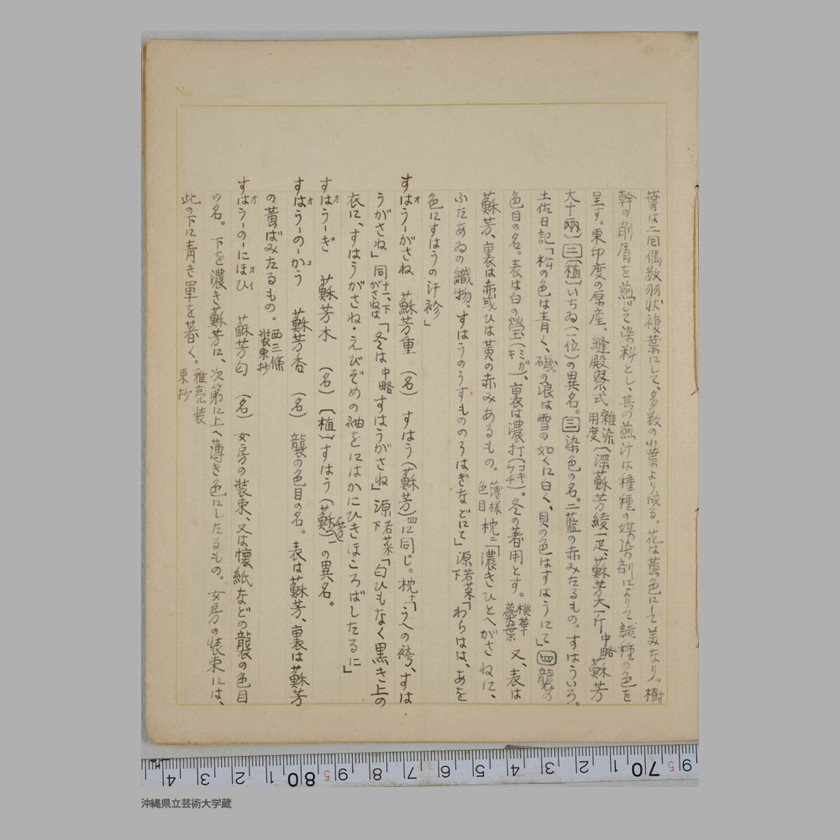 葉は二回偶数羽状複葉にして、多数の小葉より成る。花は黄色にして美なり。樹
幹の削屑を煎じて染料とし、其の煎汁は種種の媒染剤によりて、諸種の色を
呈す。東印度の原産。縫殿寮式 雑染用度「深蘇芳綾一疋、蘇芳大一斤 中略 蘇芳
大十両」[二][植]いちゐ(一位)の異名。[三]染色の名。二藍の赤みたるもの。すはういろ。
土佐日記「松の色は青く、磯の浪は雪の如くに白く、貝の色はすはうにて」[四]襲の
色目の名。表は白の瑩(ミガキ)、裏は濃打(コキウチ)。冬の著用とす。桃華蘂葉 又、表は
蘇芳、裏は赤或ひは黄の赤みあるもの。薄様色目 枕二「濃きひとへがさねに、
ふたあゐの織物、すはうのうすもののうはぎなどにて」源 若菜下「わらはは、あを
色にすはうの汗衫」
すはう-がさね 蘇芳重 (名) すはう(蘇芳)四に同じ。枕十「うへの袴、すは
うがさね」同十一、下がさねは「冬は 中略 すはうがさね」源 若菜下「匂ひもなく黒き上の
衣に、すはうがさね・えびぞめの袖をにはかにひきほころばしたるに」
すはう-ぎ 蘇芳木 (名) [植]すはう(蘇芳)一の異名。
すはう-の-かう 蘇芳香 (名) 襲の色目の名。表は蘇芳、裏は蘇芳
の黄ばみたるもの。西三條装束抄
すはう-の-にほひ 蘇芳匂 (名) 女房の装束、又は懐紙などの襲の色目
の名。下を濃き蘇芳に、次第に上へ薄き色にしたるもの。女房の装束には、
此の下に青き単を著く。雅亮装束抄
No.
9 70 1 2 3 4 5 6 7 8 9 80 1 2 3 4
沖縄県立芸術大学蔵